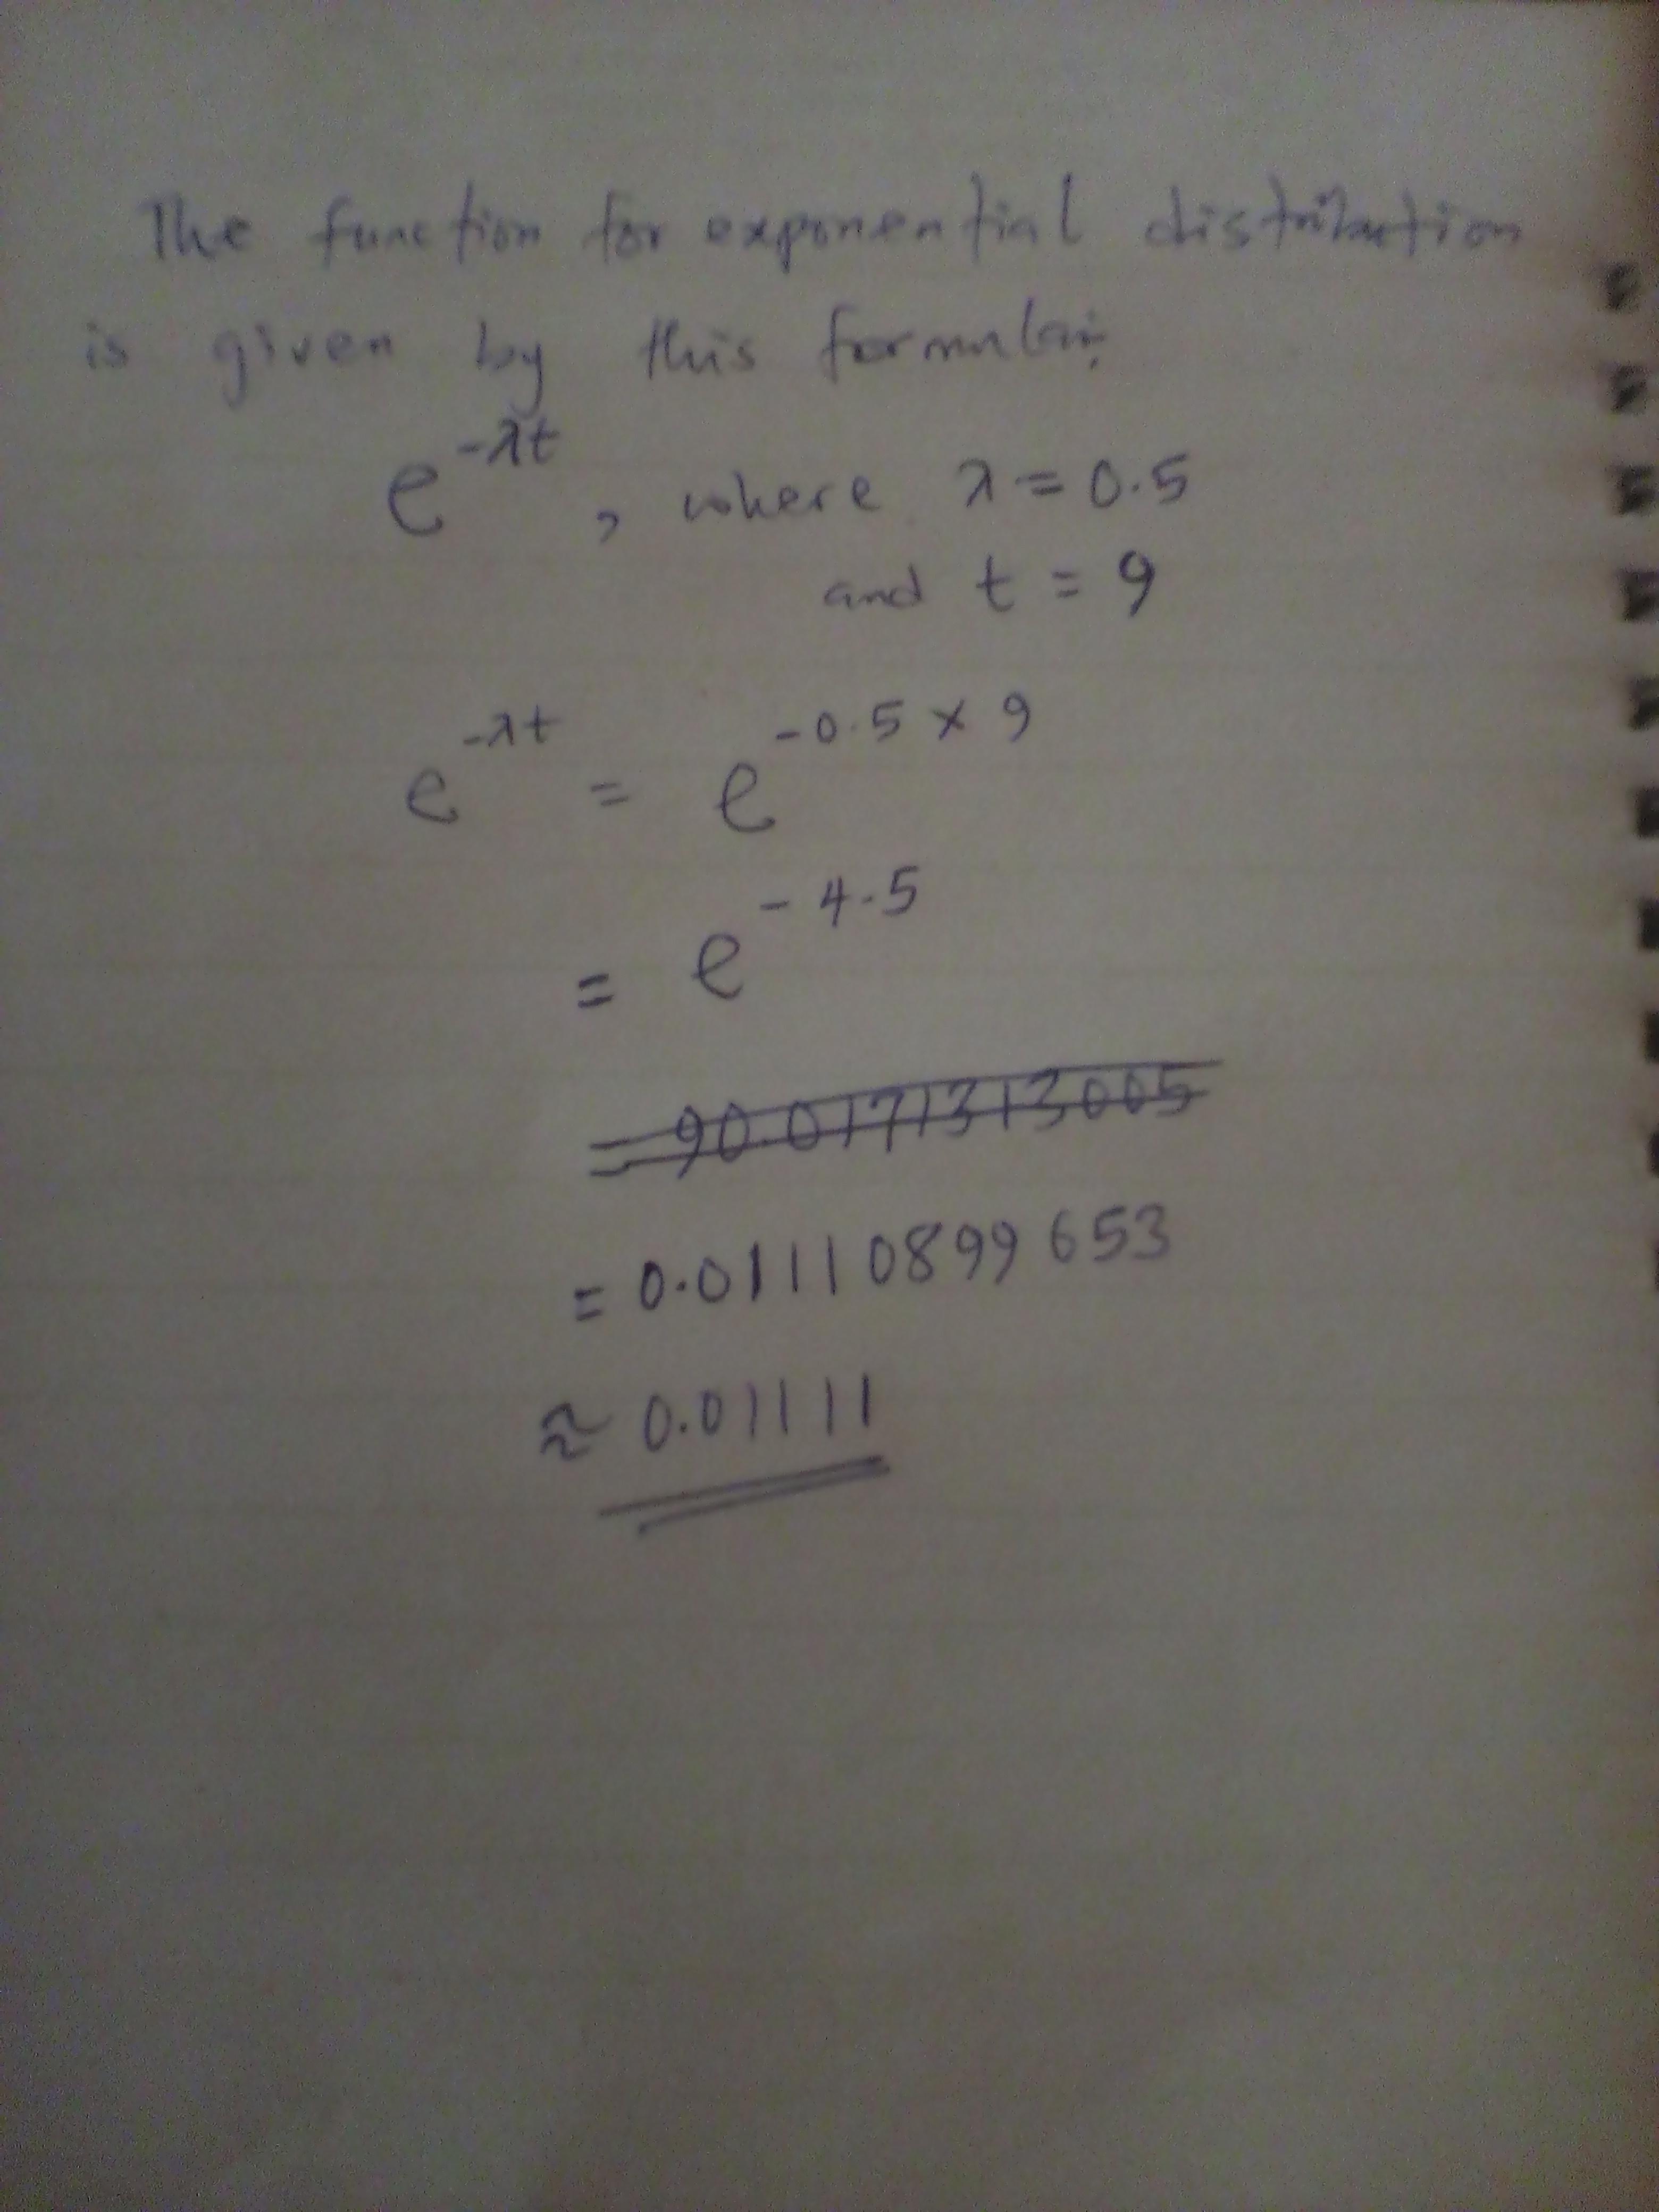 The function for exponential distribution
is given by this formular:
e^-λt, where λ = 0.5
and t = 9
e^-λt = e^-0.5 × 9
= e^-4.5
= 90.0171313005
= 0.01110899653
≈ 0.01111